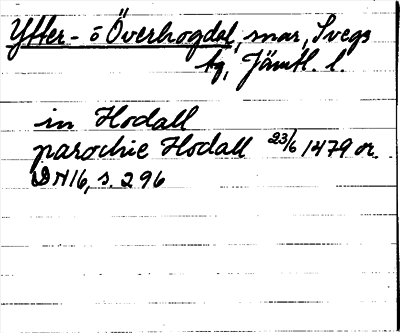 Ytter- o Överhogdal, snar, Svegs
tg, Jämtl. l.
in Hodall
parochie Hodall 23/6 1479 or.
DN16, s. 296